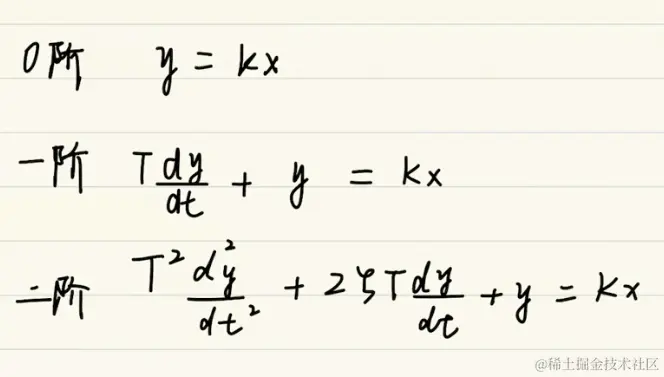 0阶 y = kx
一阶 T dy/dt + y = kx
二阶 T² d²y/dt² + 2ζT dy/dt + y = kx
@稀土掘金技术社区